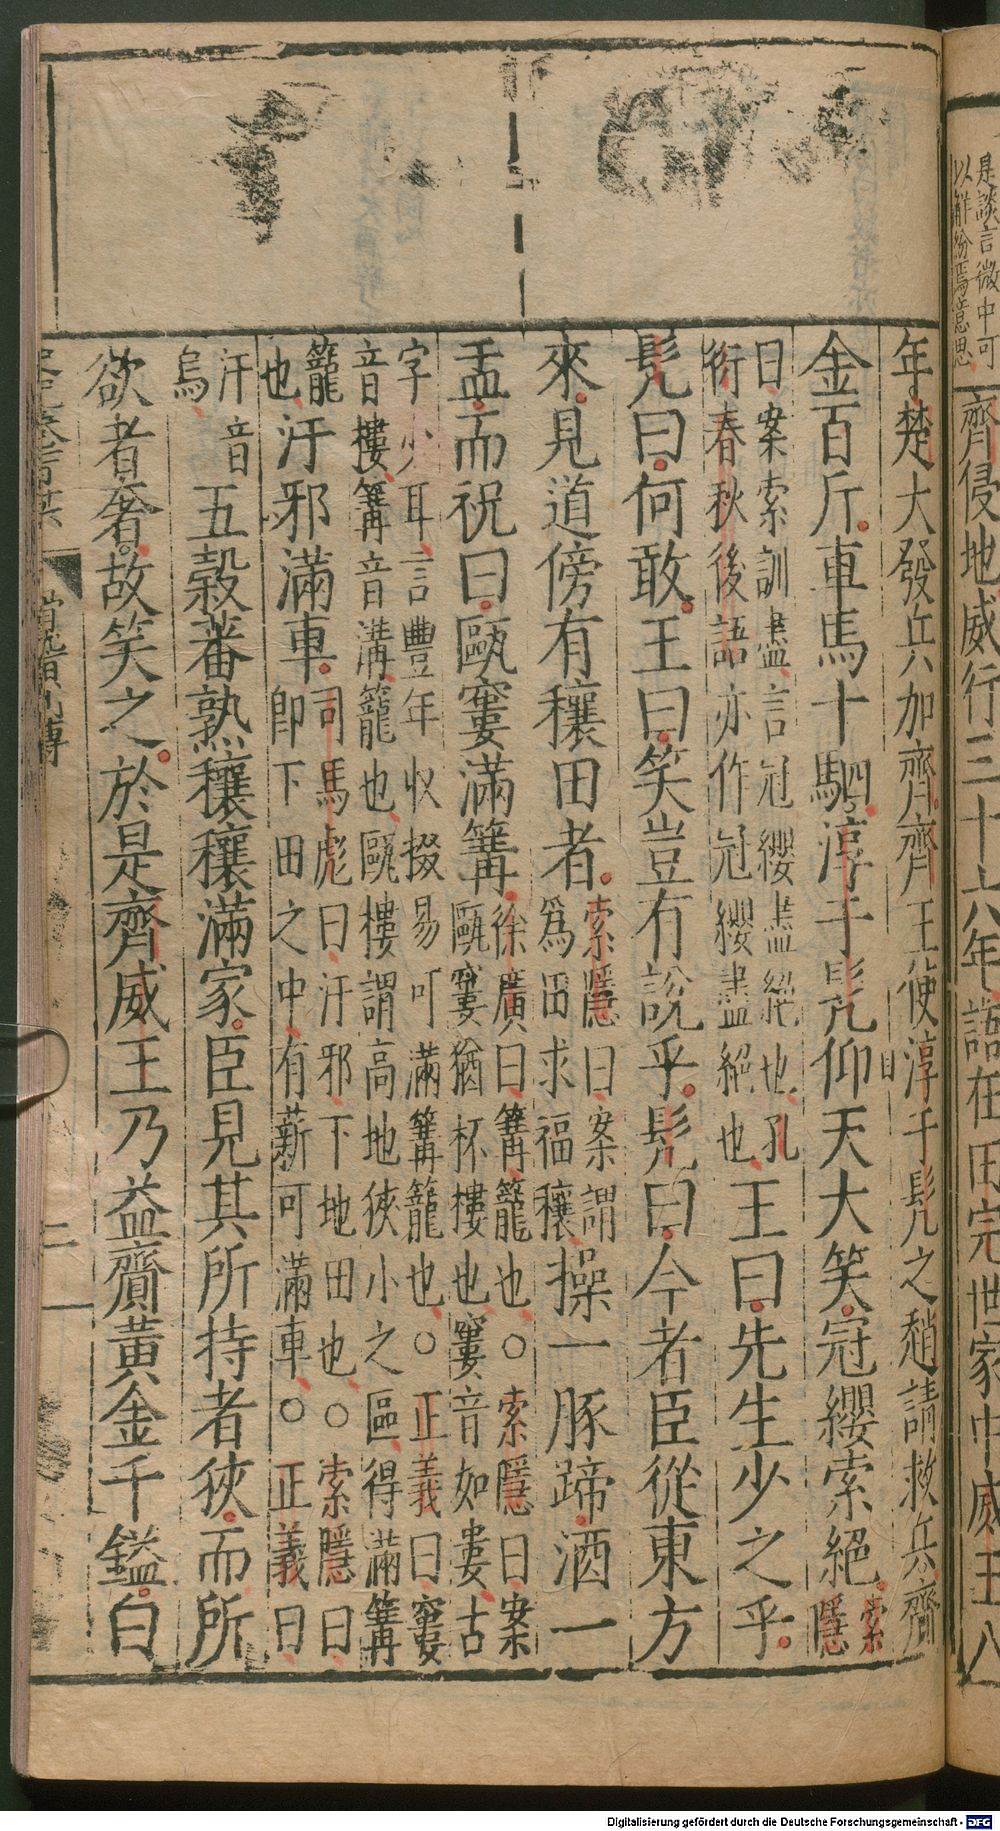 是談言微中可
以解紛焉意思
齊侵地威行三十六年語在田完世家中威王八
年楚大發兵加齊齊王使淳于髡之趙請救兵齎
金百斤車馬十駟淳于髡仰天大笑冠纓索絕索隱
曰案索訓盡言冠纓盡絕也孔
衍春秋後語亦作冠纓盡絕也王曰先生少之乎
髡曰何敢王曰笑豈有說乎髡曰今者臣從東方
來見道傍有穰田者索隱曰案謂
為田求福穰操一豚蹄酒一
盂而祝曰甌窶滿篝徐廣曰篝籠也○索隱曰案
甌窶猶杯樓也窶音如婁古
字少耳言豐年收掇易可滿篝籠也○正義曰窶
音樓篝音溝籠也甌樓謂高地狹小之區得滿篝
籠也汙邪滿車司馬彪曰汙邪下地田也○索隱曰
即下田之中有薪可滿車○正義曰
汙音
烏五穀蕃熟穰穰滿家臣見其所持者狹而所
欲者奢故笑之於是齊威王乃益齎黃金千鎰白
滑稽列傳
二
Digitalisierung gefördert durch die Deutsche Forschungsgemeinschaft - DFG